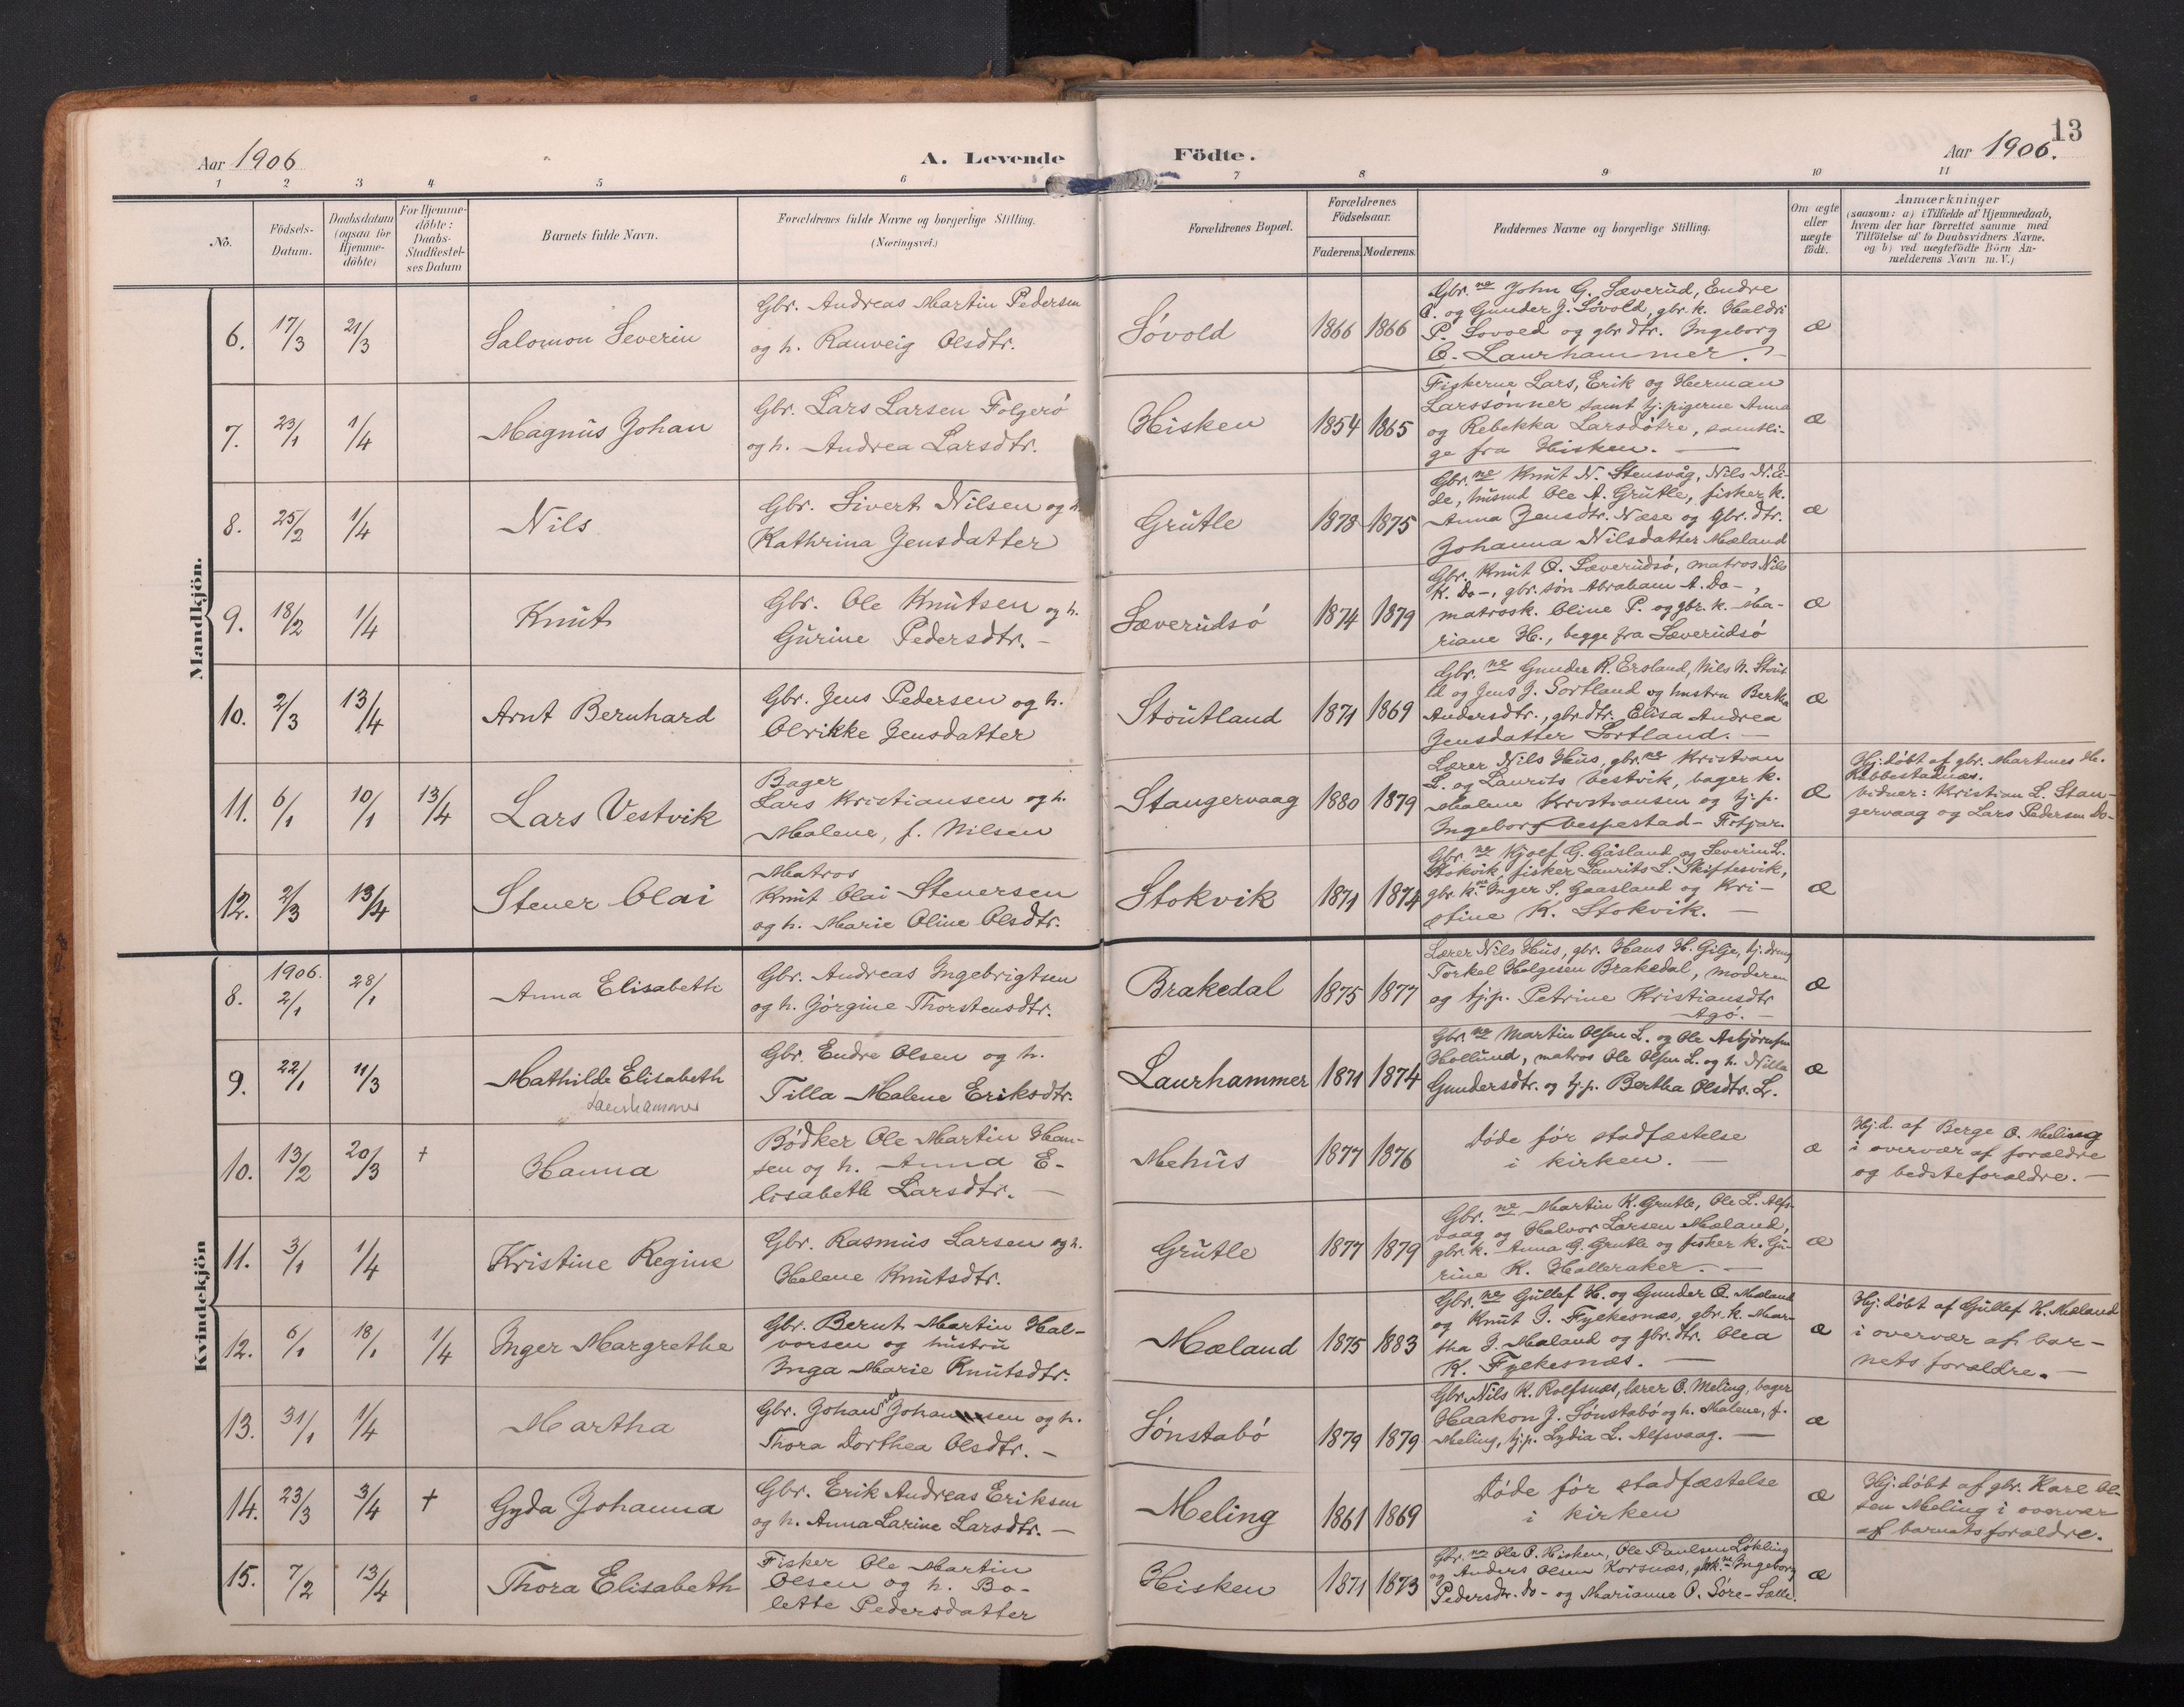 Aar 1906
A. Levende
Födte.
Aar 1906.
13
1 2 3 4 5 6 7 8 9 10 11
No.
Födsels-
Datum.
Daabsdatum
(ogsaa for
Hjemme-
döbte)
For Hjemme-
döbte:
Daabs-
Stadfæstel-
ses Datum
Barnets fulde Navn.
Forældrenes fulde Navne og borgerlige Stilling.
(Næringsvei.)
Forældrenes Bopæl.
Forældrenes
Födselsaar.
Faderens. Moderens.
Faddernes Navne og borgerlige Stilling.
Om ægte
eller
uægte
födt.
Anmærkninger
(saasom: a) i Tilfælde af Hjemmedaab,
hvem der har forrettet samme med
Tilföielse af to Daabsvidners Navne,
og b) ved uægtefödte Börn An-
melderens Navn m. V.)
Mandkjön.
6. 17/3 21/3
Salomon Severin
Gbr. Andreas Martin Pedersen
og h. Ranveig Olsdtr.
Søvold
1866 1866
Gbr.ne John G. Sæverud, Endre
O. og Gunder J. Søvold, gbr. k. Haldri
P. Sovold og gbr dtr. Ingeborg
O. Laurhammer.
æ
7. 23/1 1/4
Magnus Johan
Gbr. Lars Larsen Folgerø
og h. Andrea Larsdtr.
Hisken
1854 1865
Fiskerne Lars, Erik og Herman
Larssønner samt tj.pigerne Anna
og Rebekka Larsdøtre, samtli-
ge fra Hisken.
æ
8. 25/2 1/4
Nils
Gbr. Sivert Nilsen og h.
Kathrina Jensdatter
Grutle
1878 1875
Gbr.ne Knut N. Stensvåg, Nils N. Ei-
de, husmd Ole A. Grutle, fisker k.
Anna Jensdtr. Næse og Gbr. dtr.
Johanna Nilsdatter Mæland
æ
9. 18/2 1/4
Knut
Gbr. Ole Knutsen og h.
Gurine Pedersdtr.
Sæverudsø
1874 1879
Gbr. Knut O. Sæverudsø, matros Nils
K. Do-, gbr. søn Abraham A. Do-,
matrosk. Oline P. og gbr. k. Ma-
riane H., begge fra Sæverudsø
æ
10. 2/3 13/4
Arnt Bernhard
Gbr. Jens Pedersen og h.
Olrikke Jensdatter
Stoutland
1871 1869
Gbr.ne Gunder R. Ersland, Nils N. Stout-
ld og Jens J. Sortland og hustru Bertha
Andersdtr., gbr.dtr. Elisa Andrea
Jensdatter Sortland.
æ
11. 6/1 10/1 13/4
Lars Vestvik
Bager
Lars Kristiansen og h.
Malene, f. Nilsen
Stangervaag
1880 1879
Lærer Nils Hus, gbr.ne Kristian
L. og Laurits Vestvik, bager k.
Malene Kristiansen og tj.p.
Ingeborg Vespestad - Fitjar.
æ
Hj. døbt af gbr. Martines M.
Rabbestadnæs.
Vidner: Kristian L. Stan-
gervaag og Lars Pedersen Do-
12. 2/3 13/4
Stener Olai
Matros
Knut Olai Stenersen
og h. Marie Oline Olsdtr.
Stokvik
1871 1874
Gbr.ne Kjolf G. Gåsland og Severin L.
Stokvik, fisker Laurits L. Skiftesvik,
gbr. k.ne Inger S. Gaasland og Kri-
stine K. Stokvik.
æ
Kvindekjön
8. 1906. 2/1 28/1
Anna Elisabeth
Gbr. Andreas Ingebrigtsen
og h. Jørgine Thorstensdtr.
Brakedal
1875 1877
Lærer Nils Hus, gbr. Hans H. Gilje, tj.dreng
Torkel Helgesen Brakedal, moderen
og tj.p. Petrine Kristiansdtr
Agø.
æ
9. 22/1 11/3
Mathilde Elisabeth
Laurhammer
Gbr. Endre Olsen og h.
Tilla Malene Eriksdtr.
Laurhammer
1871 1874
Gbr.ne Martin Olsen L. og Ole Asbjørnsen
Hollund, matros Ole Olsen L. og h. Nilla
Gundersdtr. og tj.p. Bertha Olsdtr. L.
æ
10. 13/2 20/3 +
Hanna
Bødker Ole Martin Han-
sen og h. Anna E-
lisabeth Larsdtr.
Mehus
1877 1876
Døde før stadfæstelse
i kirken.
æ
Hj.d. af Berge O. Meling
i overvær af forældre
og bedsteforældre.
11. 3/1 1/4
Kristine Regine
Gbr. Rasmus Larsen og h.
Helene Knutsdtr.
Grutle
1877 1879
Gbr.ne Martin K. Grutle, Ole L. Alfs-
vaag og Halvor Larsen Mæland,
gbr. k. Anna G. Grutle og fisker k. Gu-
rine K. Halleraker.
æ
12. 6/1 18/1 1/4
Inger Margrethe
Gbr. Bernt Martin Hal-
vorsen og hustru
Inga Marie Knutsdtr.
Mæland
1875 1883
Gbr.ne Gullef H. og Gunder O. Mæland
og Knut J. Fyekesnæs, gbr. k. Mar-
tha J. Mæland og gbr. dtr. Olea
K. Fyekesnæs.
æ
Hj. døbt af Gullef H. Mæland
i overvær af bar-
nets forældre.
13. 31/1 1/4
Martha
Gbr. Johannes Johansen og h.
Thora Dorthea Olsdtr.
Sønstabø
1879 1879
Gbr. Nils K. Rolfsnæs, lærer O. Meling, bager
Haakon J. Sønstabø og h. Malene, f.
Meling, tj.p. Lydia L. Alfsvaag.
æ
14. 23/3 3/4 +
Gyda Johanna
Gbr. Erik Andreas Eriksen
og h. Anna Larine Larsdtr.
Meling
1861 1869
Døde før stadfæstelse
i kirken
æ
Hj. døbt af gbr. Karl Ol-
sen Meling i overvær
af barnets forældre.
15. 7/2 13/4
Thora Elisabeth
Fisker Ole Martin
Olsen og h. Bo-
lette Pedersdatter
Hisken
1871 1873
Gbr.ne Ole P. Hisken, Ole Paulsen Løkling
og Anders Olsen Korsnæs, gbr.k.ne Ingeborg
Pedersdtr. Do- og Marianne O. Søre-Salle.
æ